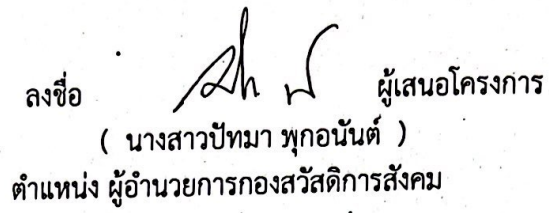 ลงชื่อ ผู้เสนอโครงการ
( นางสาวปัทมา พุกอนันต์ )
ตำแหน่ง ผู้อำนวยการกองสวัสดิการสังคม